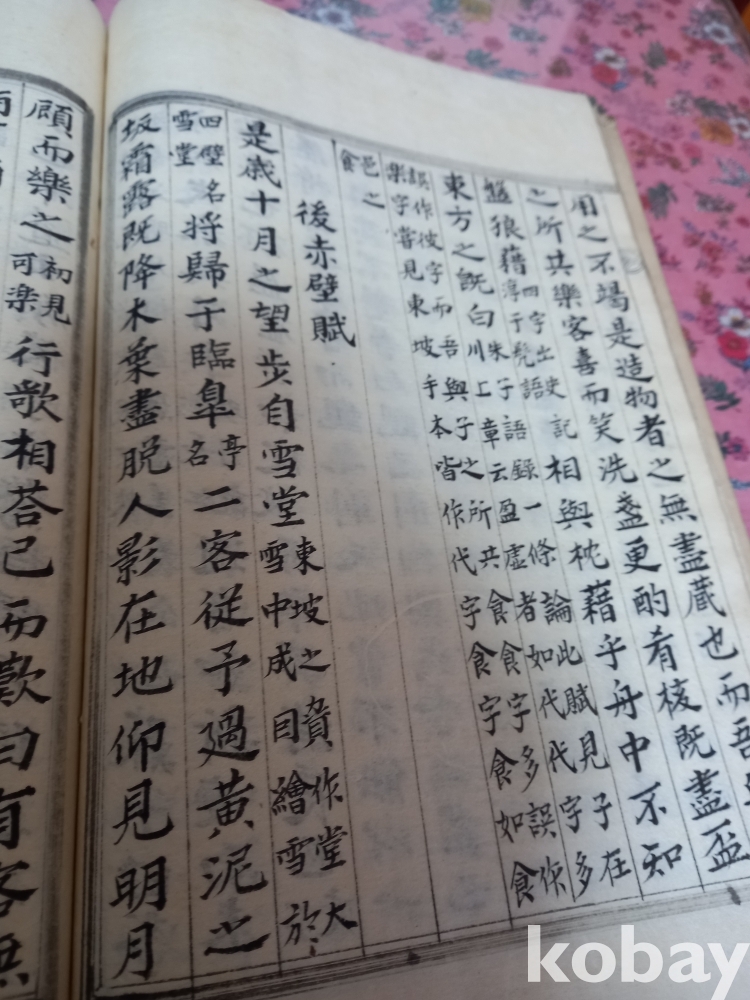 用之不竭是造物者之無盡蔵也而吾
之所共樂客喜而笑洗盞更酌肴核既盡盃
盤狼藉四字出史記淳于髡語相與枕藉乎舟中不知
東方之既白朱子語録一條論此賦見子在川上章云盈虛者如代代字多
誤作彼字而吾與子之所共食食字多誤作樂字嘗見東坡手本皆作代字食字食如食
邑之食
後赤壁賦
是歳十月之望步自雪堂東坡之賁作堂大雪中成目繪雪於
四壁名雪堂將歸于臨皐亭名二客從予過黃泥之
坂霜露既降木葉盡脱人影在地仰見明月
顧而樂之初見可楽行歌相荅已而歎曰有客無
kobay